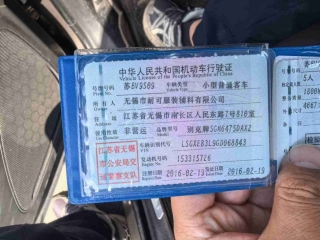 中华人民共和国机动车行驶证
Vehicle License of the People's Republic of China
号牌号码 苏BV950S 车辆类型 小型普通客车
所有人 无锡市耐可服装辅料有限公司
住址 江苏省无锡市南长区人民东路7号810室
使用性质 非营运 品牌型号 别克牌SGM6475DAX2
江苏省无锡
市公安局交
通警察支队
车辆识别代号 LSGXE83L9GD068843
发动机号码 153315726
注册日期 2016-02-19 发证日期 2016-02-19
5人
1800k
4667